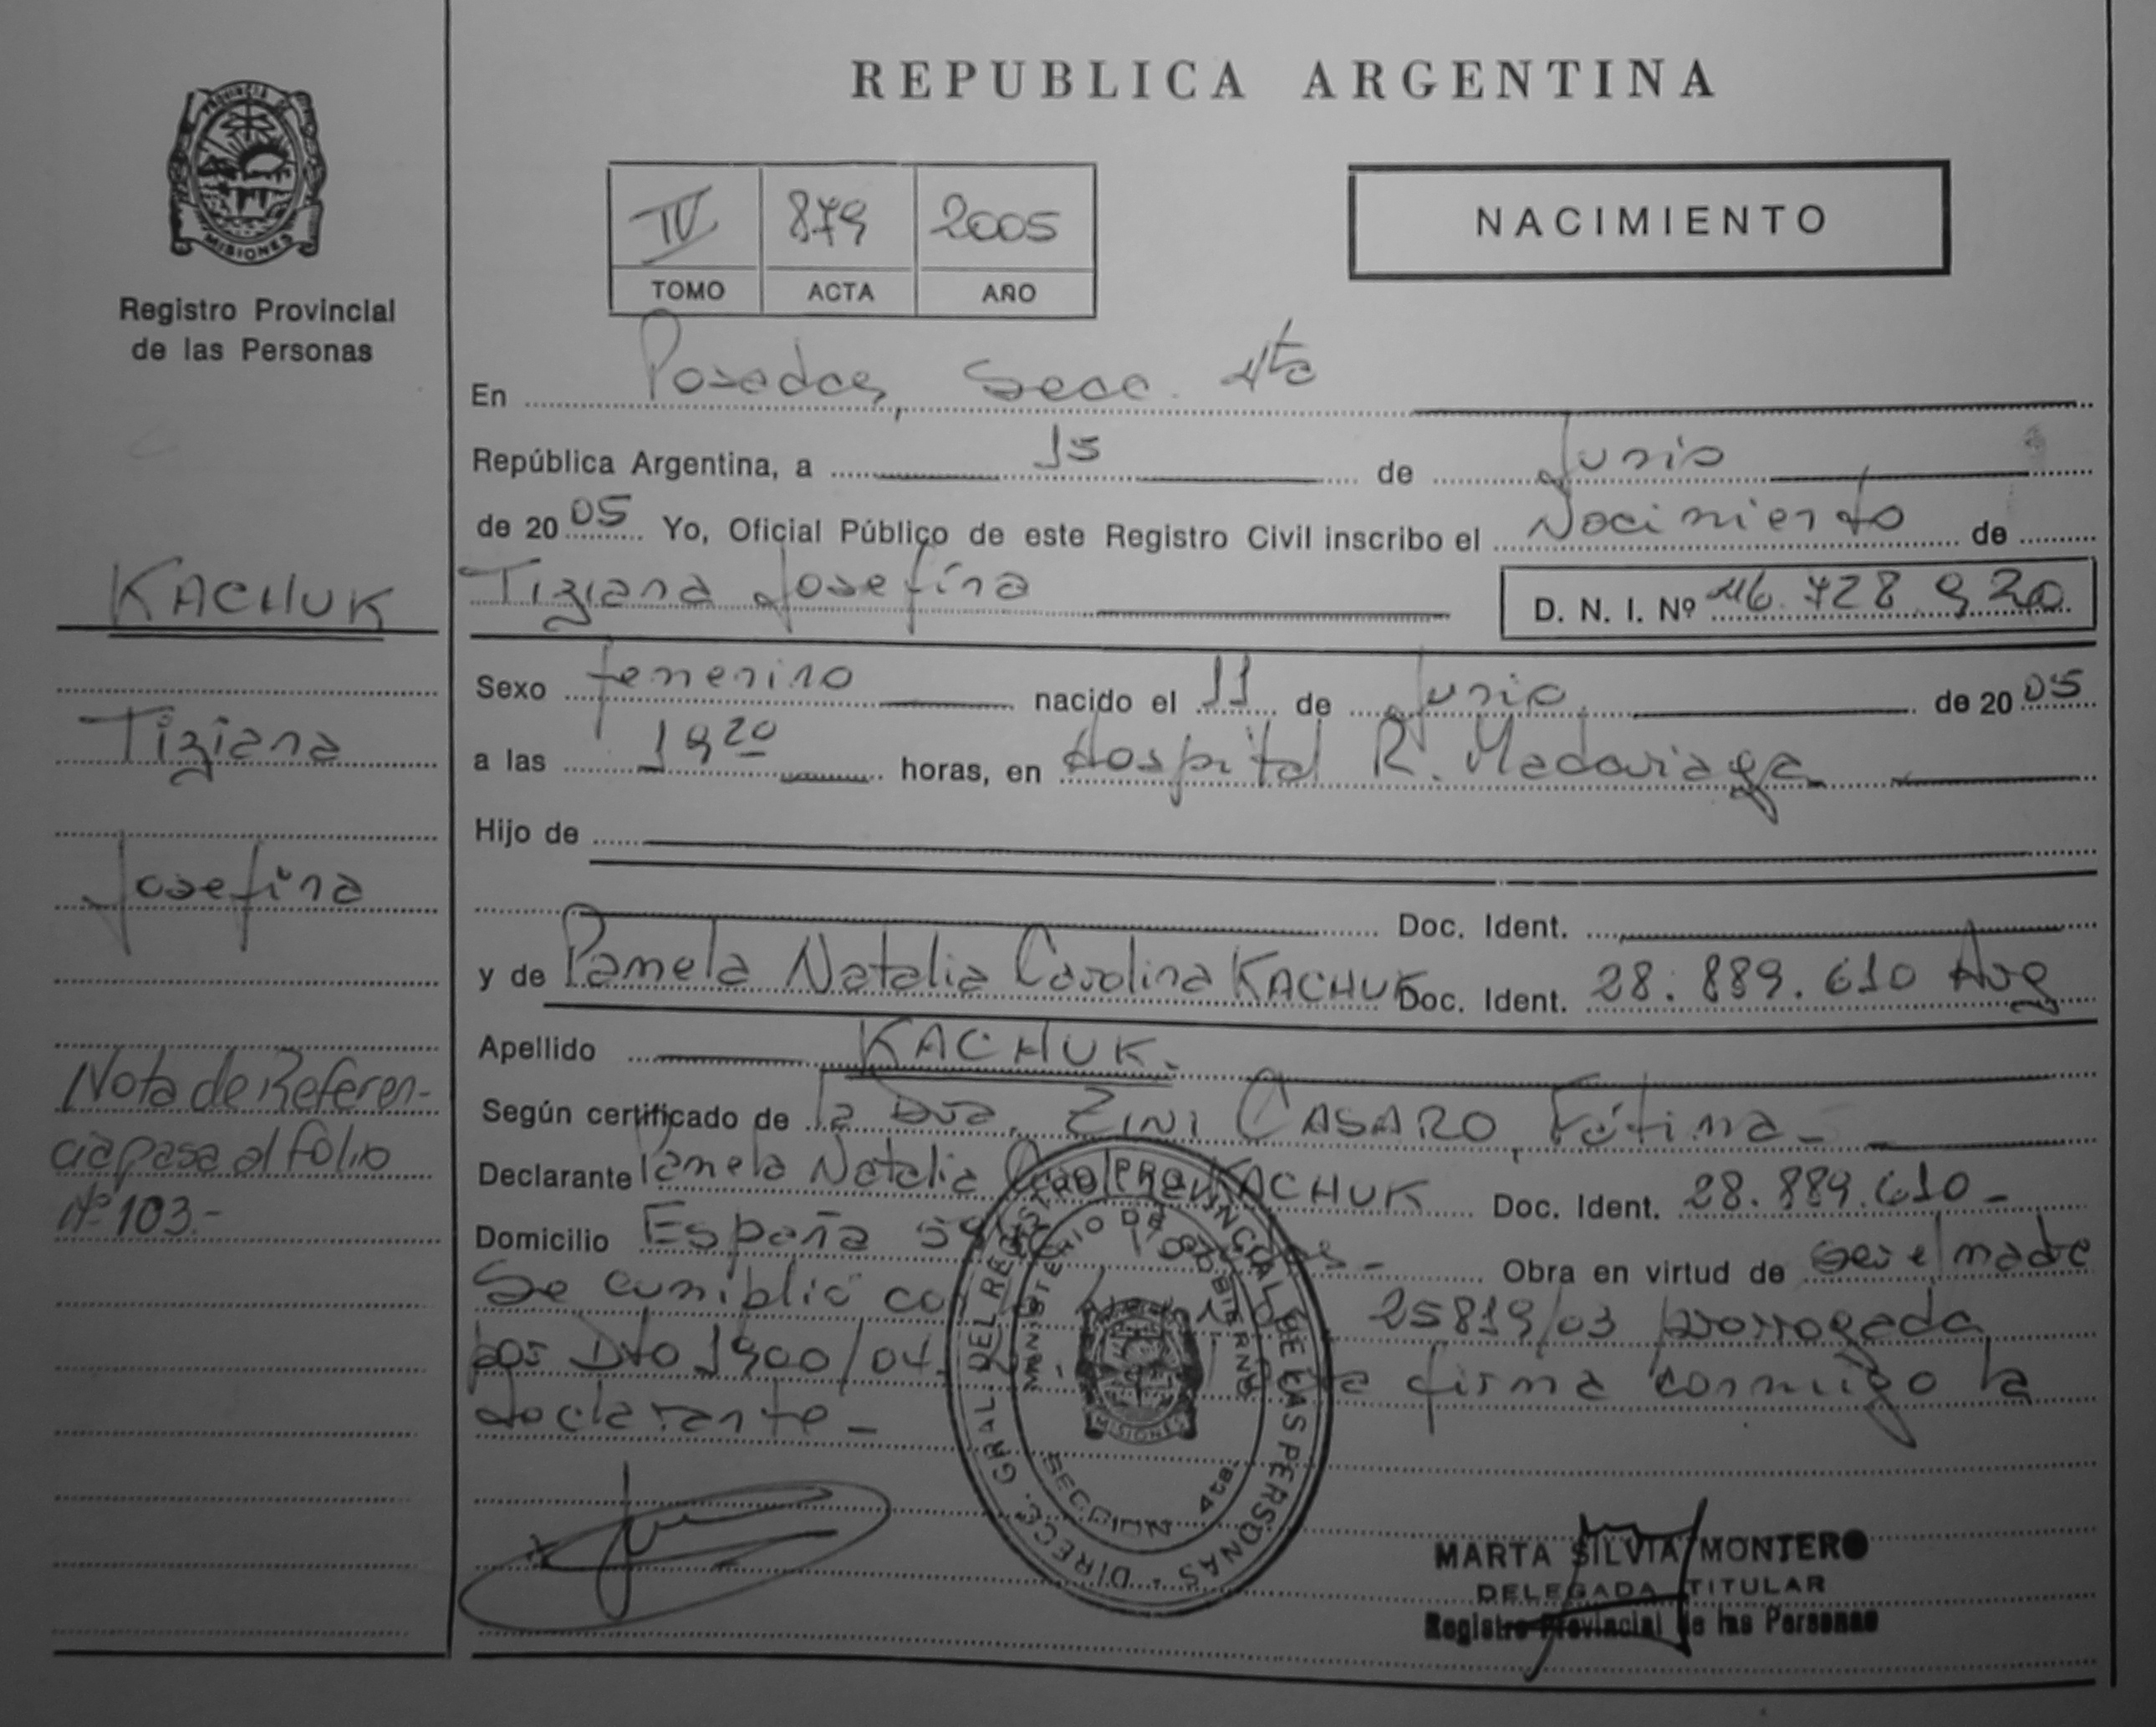 PROVINCIA DE
MISIONES
Registro Provincial
de las Personas
KACHUK
Tiziana
Josefina
Nota de Referen-
cia pasa al folio
Nº 103.-
REPUBLICA ARGENTINA
IV 879 2005
TOMO ACTA AÑO
NACIMIENTO
En Posadas, Secc. 4ta
República Argentina, a 15 de Junio
de 2005 Yo, Oficial Público de este Registro Civil inscribo el Nacimiento de
Tiziana Josefina D. N. I. Nº 46.728.920
Sexo femenino nacido el 11 de Junio de 2005
a las 19 20 horas, en Hospital R. Madariaga
Hijo de
Doc. Ident.
y de Pamela Natalia Carolina KACHUK Doc. Ident. 28.889.610 Arg
Apellido KACHUK.
Según certificado de la Dra. ZINI CASARO, Fátima-
Declarante Pamela Natalia KACHUK Doc. Ident. 28.889.610-
Domicilio España Obra en virtud de ser el madre
Se cumplió 25819/03 prorrogada
por Dto 1900/04. firma conmigo la
declarante-
DIRECC. GRAL DEL REGISTRO PROVINCIAL DE LAS PERSONAS
MINISTERIO DE GOBIERNO
MISIONES
SECCION 4ta.
MARTA SILVIA MONTERO
DELEGADA TITULAR
Registro Provincial de las Personas